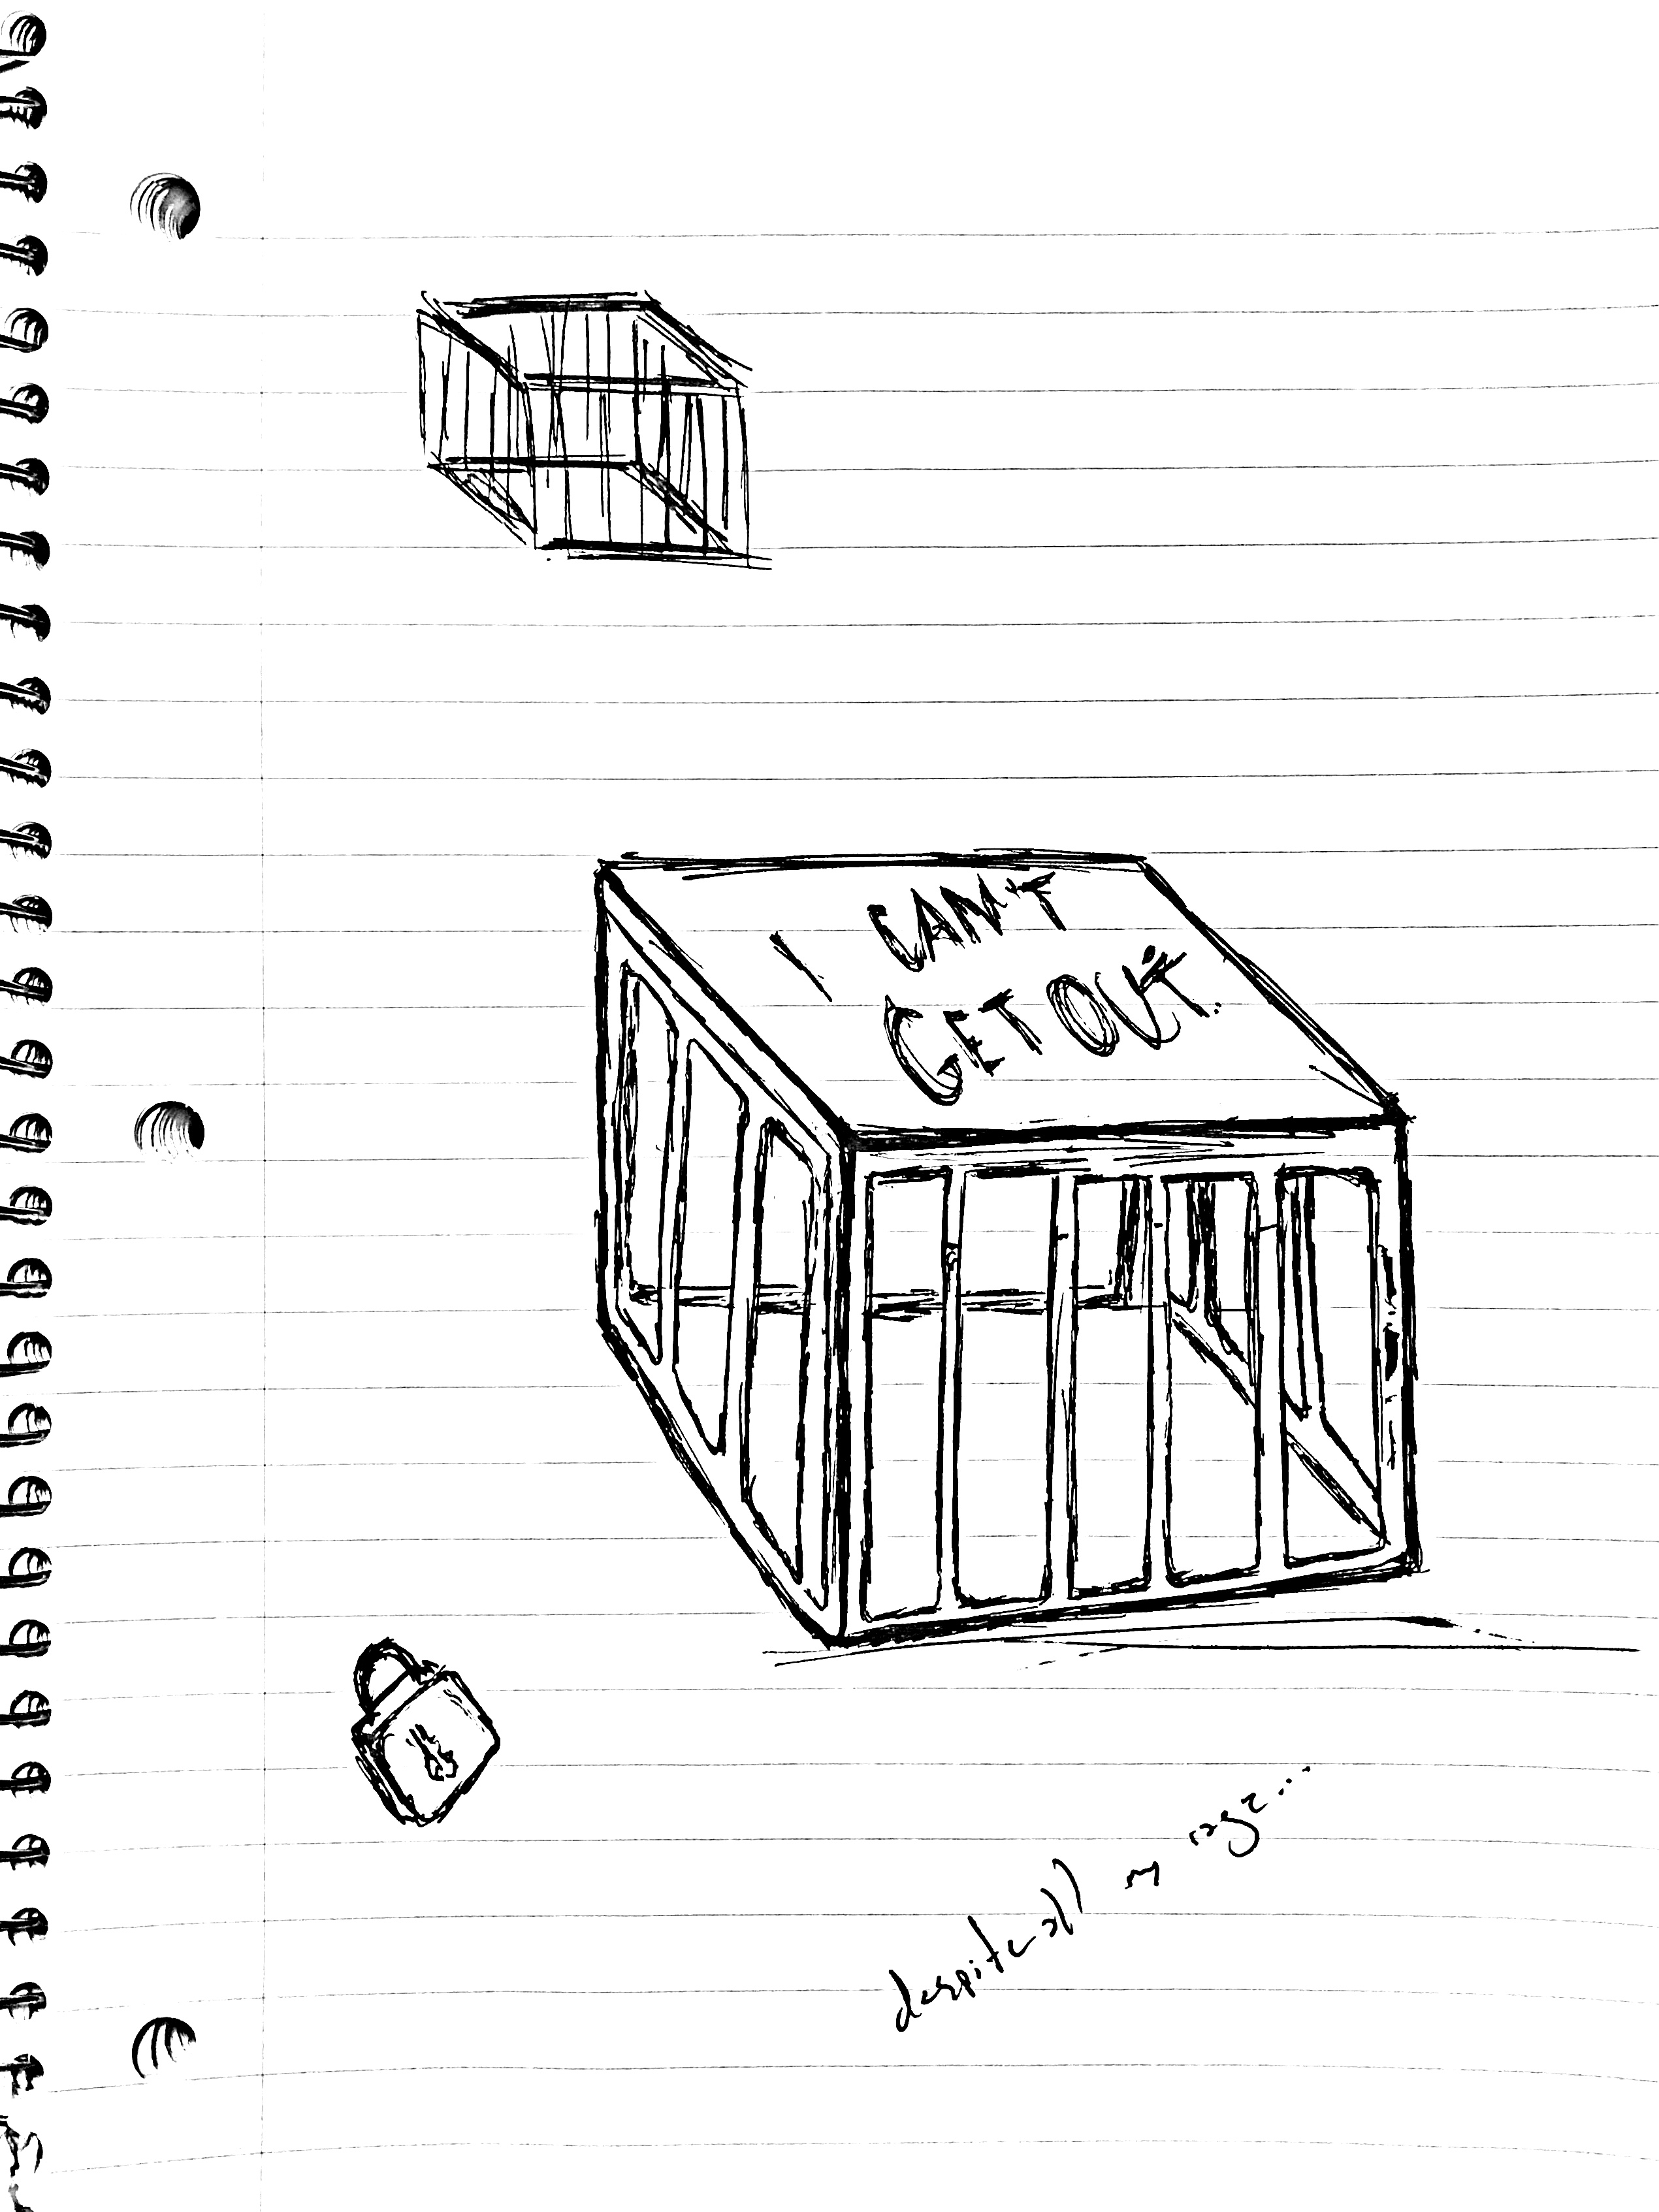 I CAN'T
GET OUT.
despite all my rage...